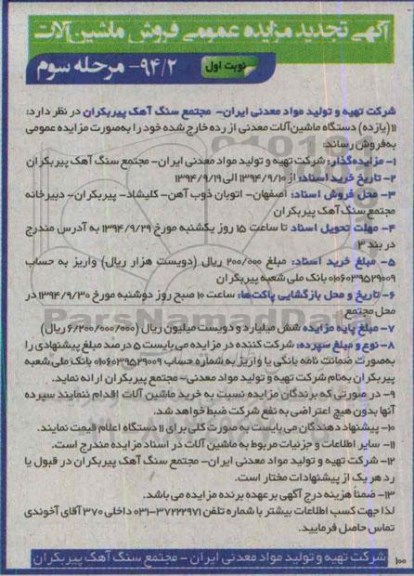 آگهی تجدید مزایده عمومی فروش ماشین‌آلات
نوبت اول
۹۴/۲- مرحله سوم
شرکت تهیه و تولید مواد معدنی ایران- مجتمع سنگ آهک پیربکران در نظر دارد:
۱۱(یازده) دستگاه ماشین‌آلات معدنی از رده خارج شده خود را به‌صورت مزایده عمومی
به‌فروش رساند:
۱- مزایده‌گذار: شرکت تهیه و تولید مواد معدنی ایران-مجتمع سنگ آهک پیربکران
۲- تاریخ خرید اسناد: از ۱۳۹۴/۹/۱۰ الی ۱۳۹۴/۹/۱۹
۳- محل فروش اسناد: اصفهان- اتوبان ذوب آهن- کلیشاد- پیربکران- دبیرخانه
مجتمع سنگ آهک پیربکران
۴- مهلت تحویل اسناد تا ساعت ۱۵ روز یکشنبه مورخ ۱۳۹۴/۹/۲۹ به آدرس مندرج
در بند ۳
۵- مبلغ خرید اسناد: مبلغ ۲۰۰/۰۰۰ ریال (دویست هزار ریال) واریز به حساب
۰۱۰۶۰۳۹۵۲۹۰۰۹ بانک ملی شعبه پیربکران
۶- تاریخ و محل بازگشایی پاکت‌ها: ساعت ۱۰ صبح روز دوشنبه مورخ ۱۳۹۴/۹/۳۰ در
محل مجتمع
۷- مبلغ پایه مزایده شش میلیارد و دویست میلیون ریال (۶/۲۰۰/۰۰۰/۰۰۰ ریال)
۸- نوع و مبلغ سپرده: شرکت کننده در مزایده می بایست ۵ درصد مبلغ پیشنهادی را
به‌صورت ضمانت نامه بانکی یا واریز به شماره حساب ۰۱۰۶۰۳۹۵۲۹۰۰۹ بانک ملی شعبه
پیربکران به‌نام شرکت تهیه و تولید مواد معدنی- مجتمع پیربکران ارائه نماید.
۹- در صورتی که برندگان مزایده نسبت به خرید ماشین آلات اقدام ننمایند سپرده
آنها بدون هیچ اعتراضی به نفع شرکت ضبط خواهد شد.
۱۰- پیشنهاد دهندگان می بایست به صورت کلی برای ۱۱ دستگاه اعلام قیمت نمایند.
۱۱- سایر اطلاعات و جزئیات مربوط به ماشین آلات در اسناد مزایده مندرج است.
۱۲- شرکت تهیه و تولید مواد معدنی ایران- مجتمع سنگ آهک پیربکران در قبول یا
رد هر یک از پیشنهادات مختار است.
۱۳- ضمناً هزینه درج آگهی بر عهده برنده مزایده می باشد.
لذا جهت کسب اطلاعات بیشتر با شماره تلفن ۳۷۲۲۲۹۷۱-۰۳۱ داخلی ۳۷۰ آقای آخوندی
تماس حاصل فرمایید.
شرکت تهیه و تولید مواد معدنی ایران - مجتمع سنگ آهک پیربکران
ParsNamadData